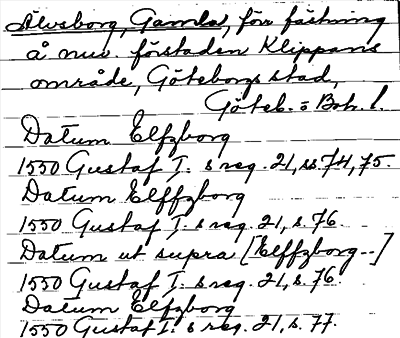 Älvsborg, Gamla, förr fästning
å nuv. förstaden Klippans
område, Göteborgs stad,
Göteb. o Boh. l.
Datum Elfzborg
1550 Gustaf I.s reg. 21, ss. 74, 75.
Datum Elffzborg
1550 Gustaf I.s reg. 21, s. 76.
Datum ut supra [Elffzborg --]
1550 Gustaf I.s reg. 21, s. 76.
Datum Elfzborg
1550 Gustaf I.s reg. 21, s. 77.